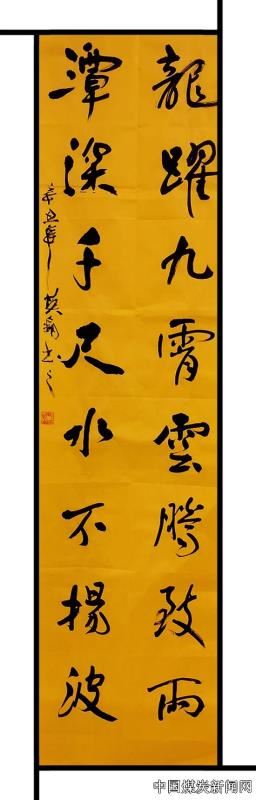 龍躍九霄雲騰致雨
潭深千尺水不揚波
辛丑年
书
中国煤炭新闻网